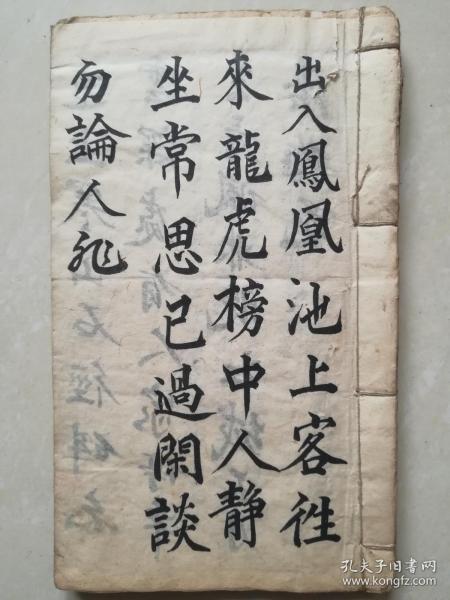 出入鳳凰池上客往
來龍虎榜中人静
坐常思已過閑談
勿論人非
孔夫子旧书网
www.kongfz.com